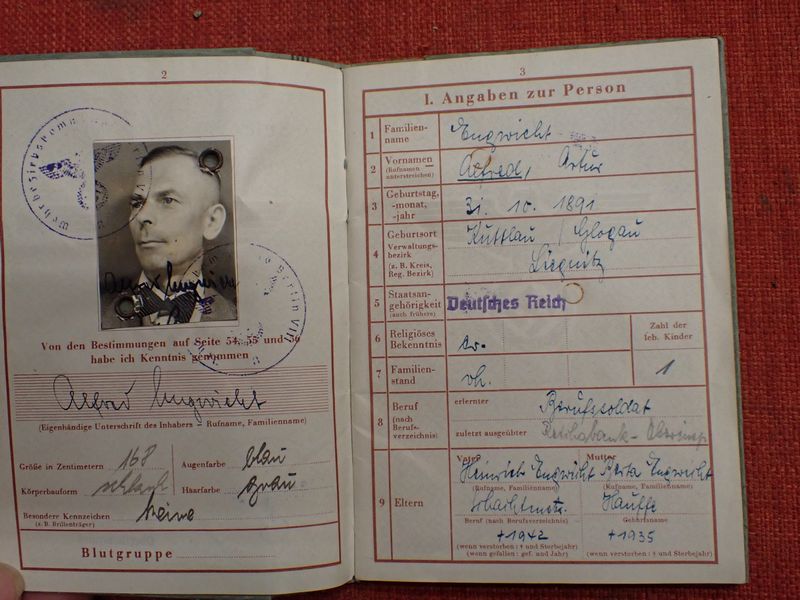 2
Wehrbezirkskomm
Berlin VIII
Von den Bestimmungen auf Seite 54, 55 und 56
habe ich Kenntnis genommen
Alfred Engwicht
(Eigenhändige Unterschrift des Inhabers – Rufname, Familienname)
Größe in Zentimetern 168
Augenfarbe blau
Körperbauform schlank
Haarfarbe grau
Besondere Kennzeichen keine
(z. B. Brillenträger)
Blutgruppe
3
I. Angaben zur Person
1 Familien-
name Engwicht
2 Vornamen Alfred, Artur
(Rufnamen
unterstreichen)
3 Geburtstag,
-monat,
-jahr 31. 10. 1891
4 Geburtsort Kuttlau / Glogau
Verwaltungs-
bezirk Liegnitz
(z. B. Kreis,
Reg. Bezirk)
5 Staatsan-
gehörigkeit Deutsches Reich
(auch frühere)
6 Religiöses
Bekenntnis ev.
Zahl der
leb. Kinder
1
7 Familien-
stand vh.
8 Beruf
(nach
Berufs-
verzeichnis)
erlernter Berufssoldat
zuletzt ausgeübter Reichsbank-
9 Eltern
Vater Mutter
Heinrich Engwicht Berta Engwicht
(Rufname, Familienname) (Rufname, Familienname)
Hauffe
Beruf (nach Berufsverzeichnis) Geburtsname
+1942 +1935
(wenn verstorben: † und Sterbejahr)
(wenn gefallen: gef. und Jahr)
(wenn verstorben: † und Sterbejahr)